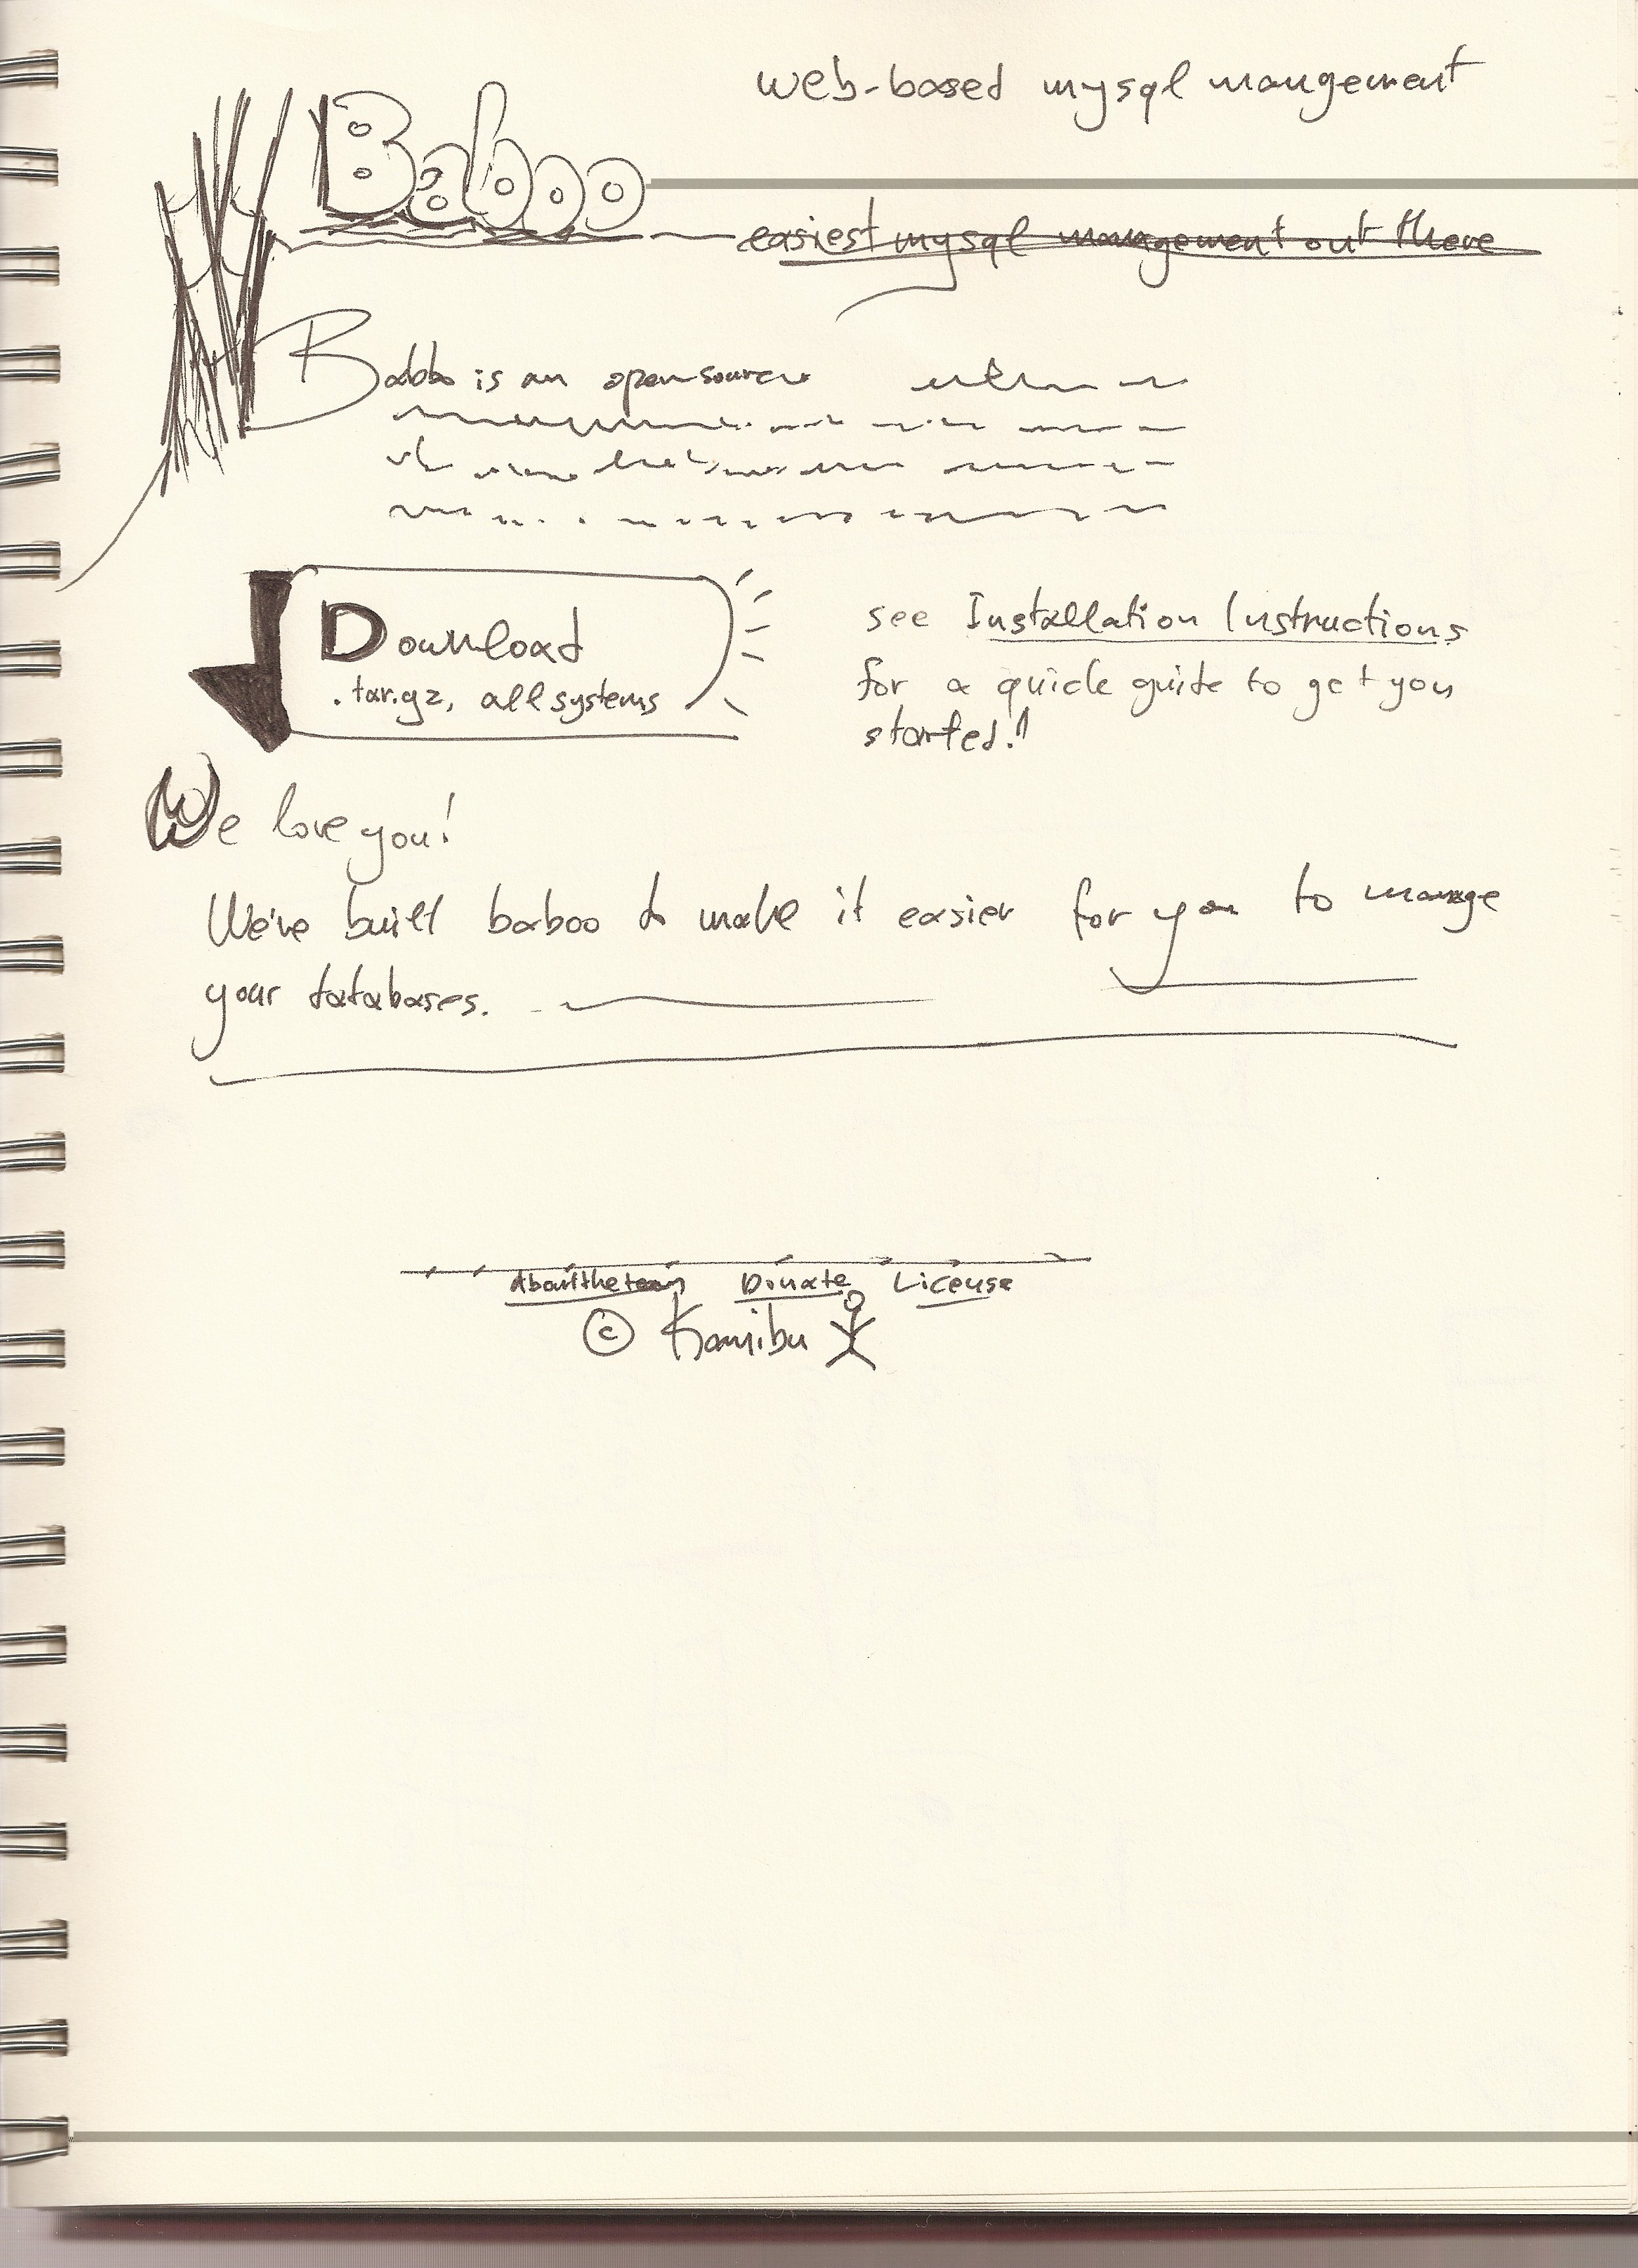 web-based mysql mangement
Baboo
easiest mysql management out there
Baboo is an opensource
Download
.tar.gz, all systems
see Installation Instructions
for a quick guide to get you
started!!
We love you!
We've built baboo to make it easier for you to manage
your databases.
About the team Donate License
© Kamibu